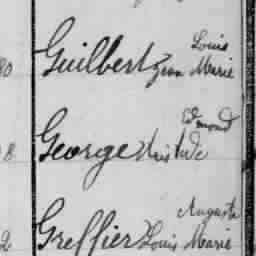 Louis
80 Guilbert Jean Marie
Edmond
8 George Aristide
Auguste
2 Greffier Louis Marie